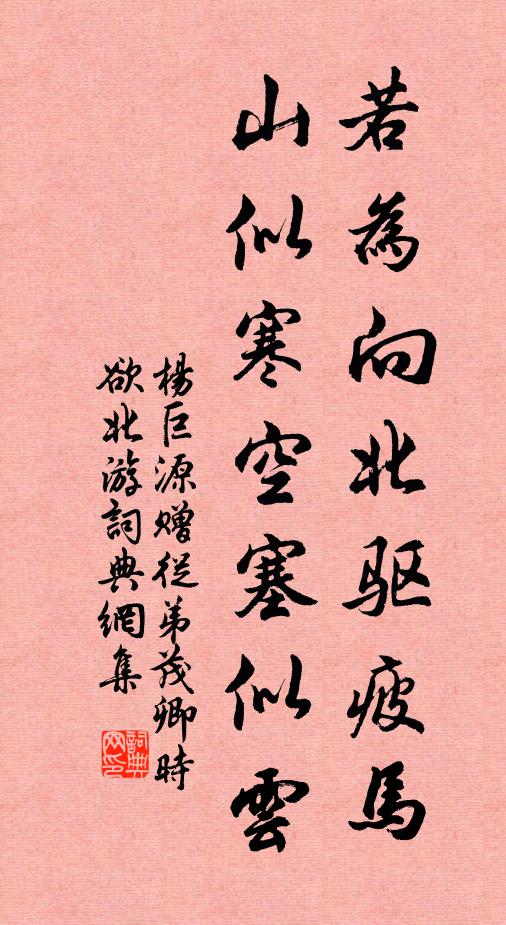 若為向北驱疲馬
山似寒空塞似雲
楊巨源赠従弟茂卿時
欲北游詞典網集
詞典
网印